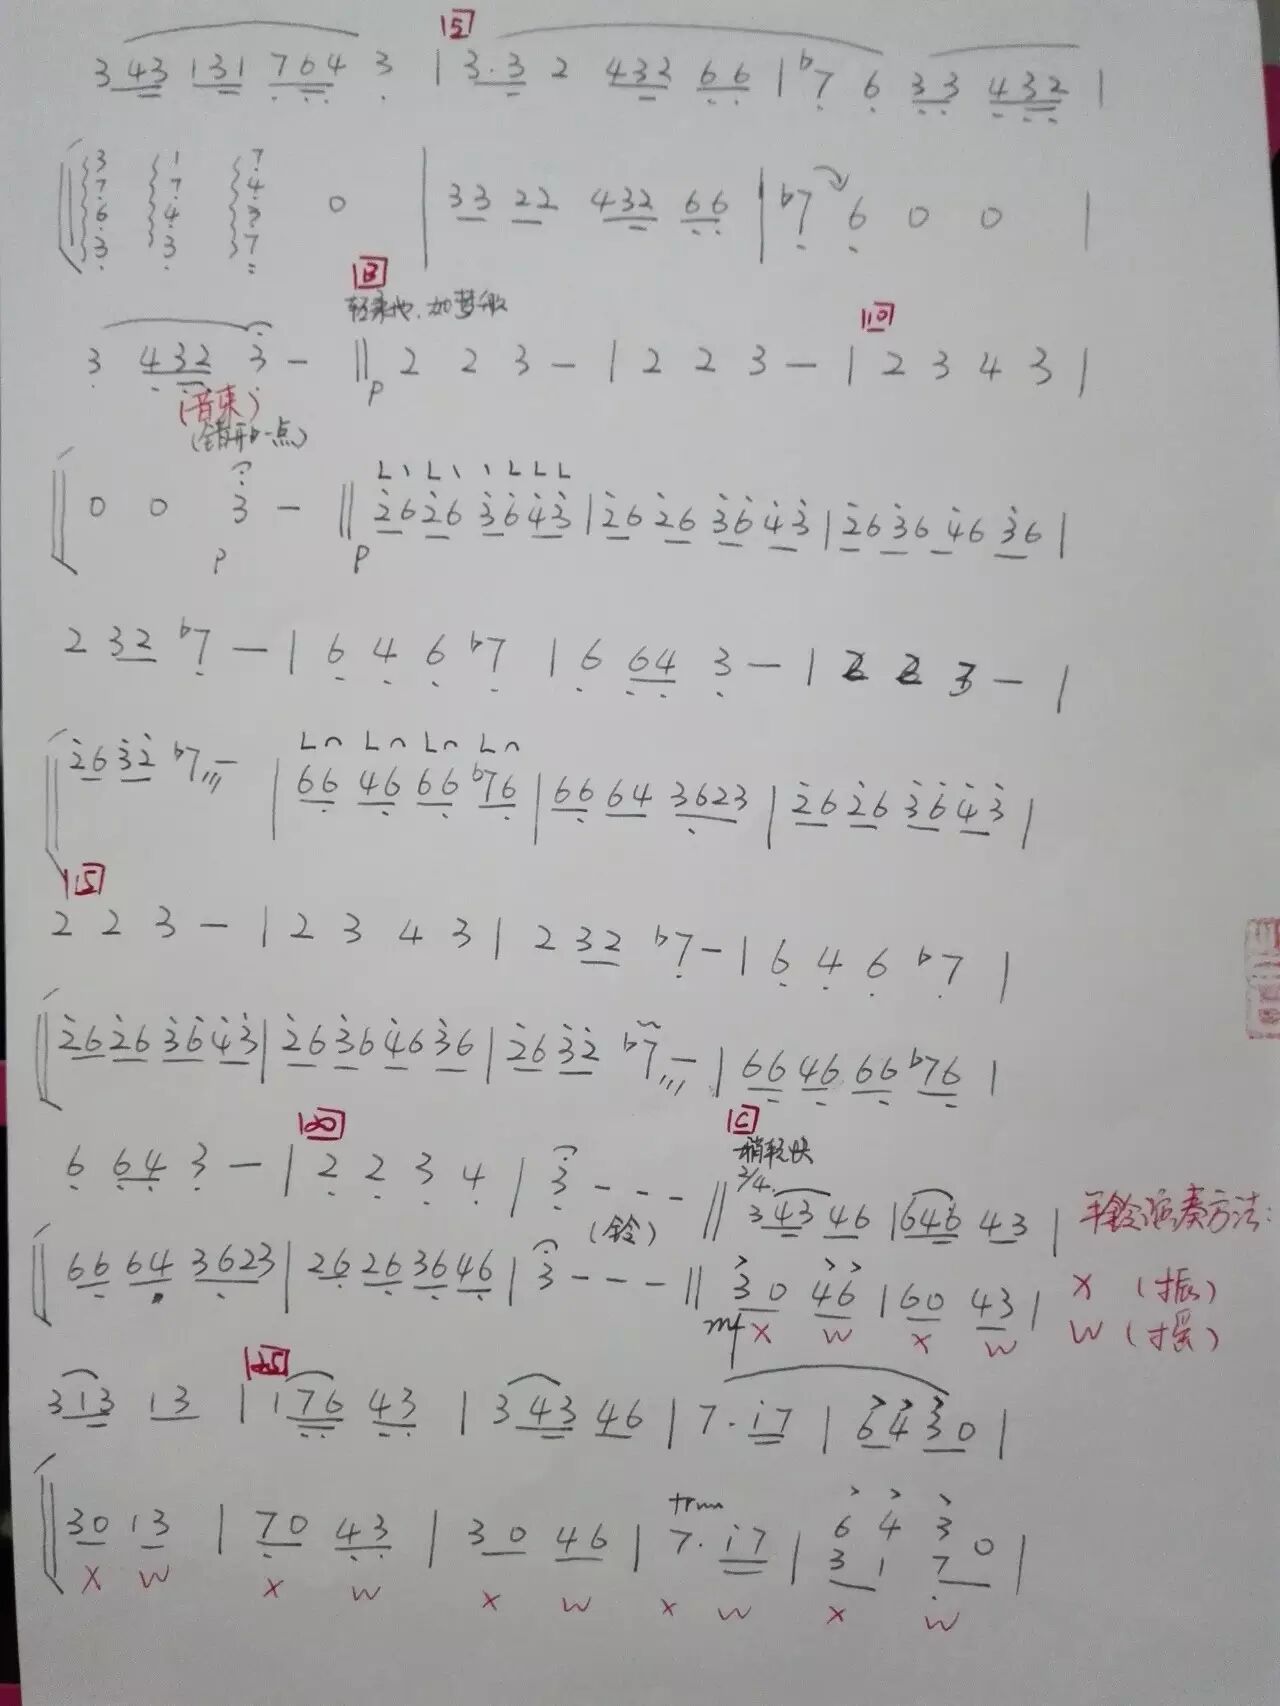 5
3 43 131 764 3 | 3.3 2 432 66 | ♭7 6 33 432 |
3 1 7
7 7 4
6 4
3 3 7
0 | 33 22 432 66 | ♭7 6 0 0 |
B
轻柔地.如梦般
10
3 432 3 - || 2 2 3 - | 2 2 3 - | 2 3 4 3 |
p
(音束)
(错开一点)
0 0 3 - || 26 26 36 43 | 26 26 36 43 | 26 36 46 36 |
p p
2 32 ♭7 - | 6 4 6 ♭7 | 6 64 3 - | 2 2 3 - |
26 32 ♭7 - | 66 46 66 ♭76 | 66 64 3623 | 26 26 36 43 |
15
2 2 3 - | 2 3 4 3 | 2 32 ♭7 - | 6 4 6 ♭7 |
26 26 36 43 | 26 36 46 36 | 26 32 ♭7 - | 66 46 66 ♭76 |
20
C
稍轻快
2/4
6 64 3 - | 2 2 3 4 | 3 - - - || 3 43 46 | 646 43 |
(铃)
手铃演奏方法:
66 64 3623 | 26 26 36 46 | 3 - - - || 30 46 | 60 43 |
mf X W X W
X (振)
W (摇)
25
313 13 | 176 43 | 3 43 46 | 7. i7 | 64 30 |
tr
30 13 | 70 43 | 30 46 | 7. i7 | 6 4 3 0 |
3 1 7
X W X W X W X W X W